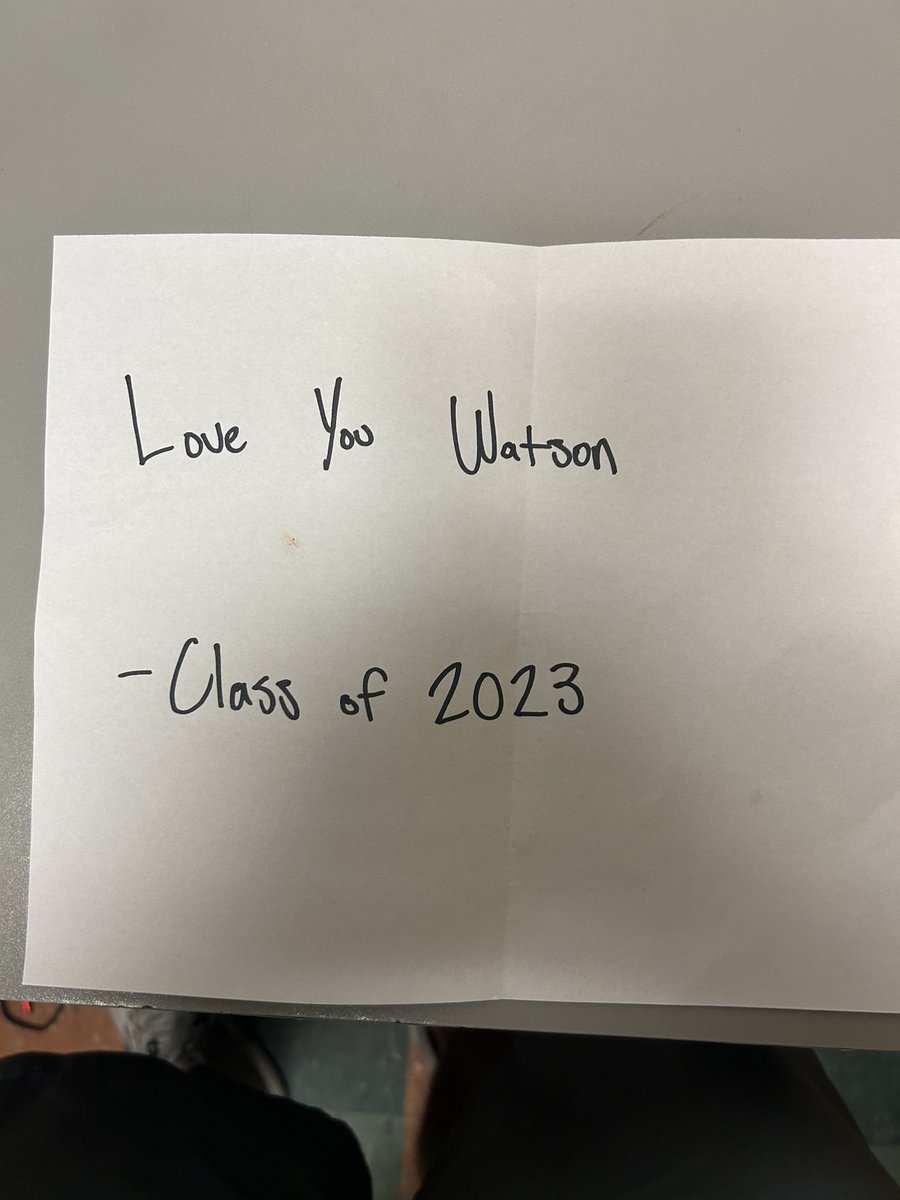 Love You Watson
- Class of 2023